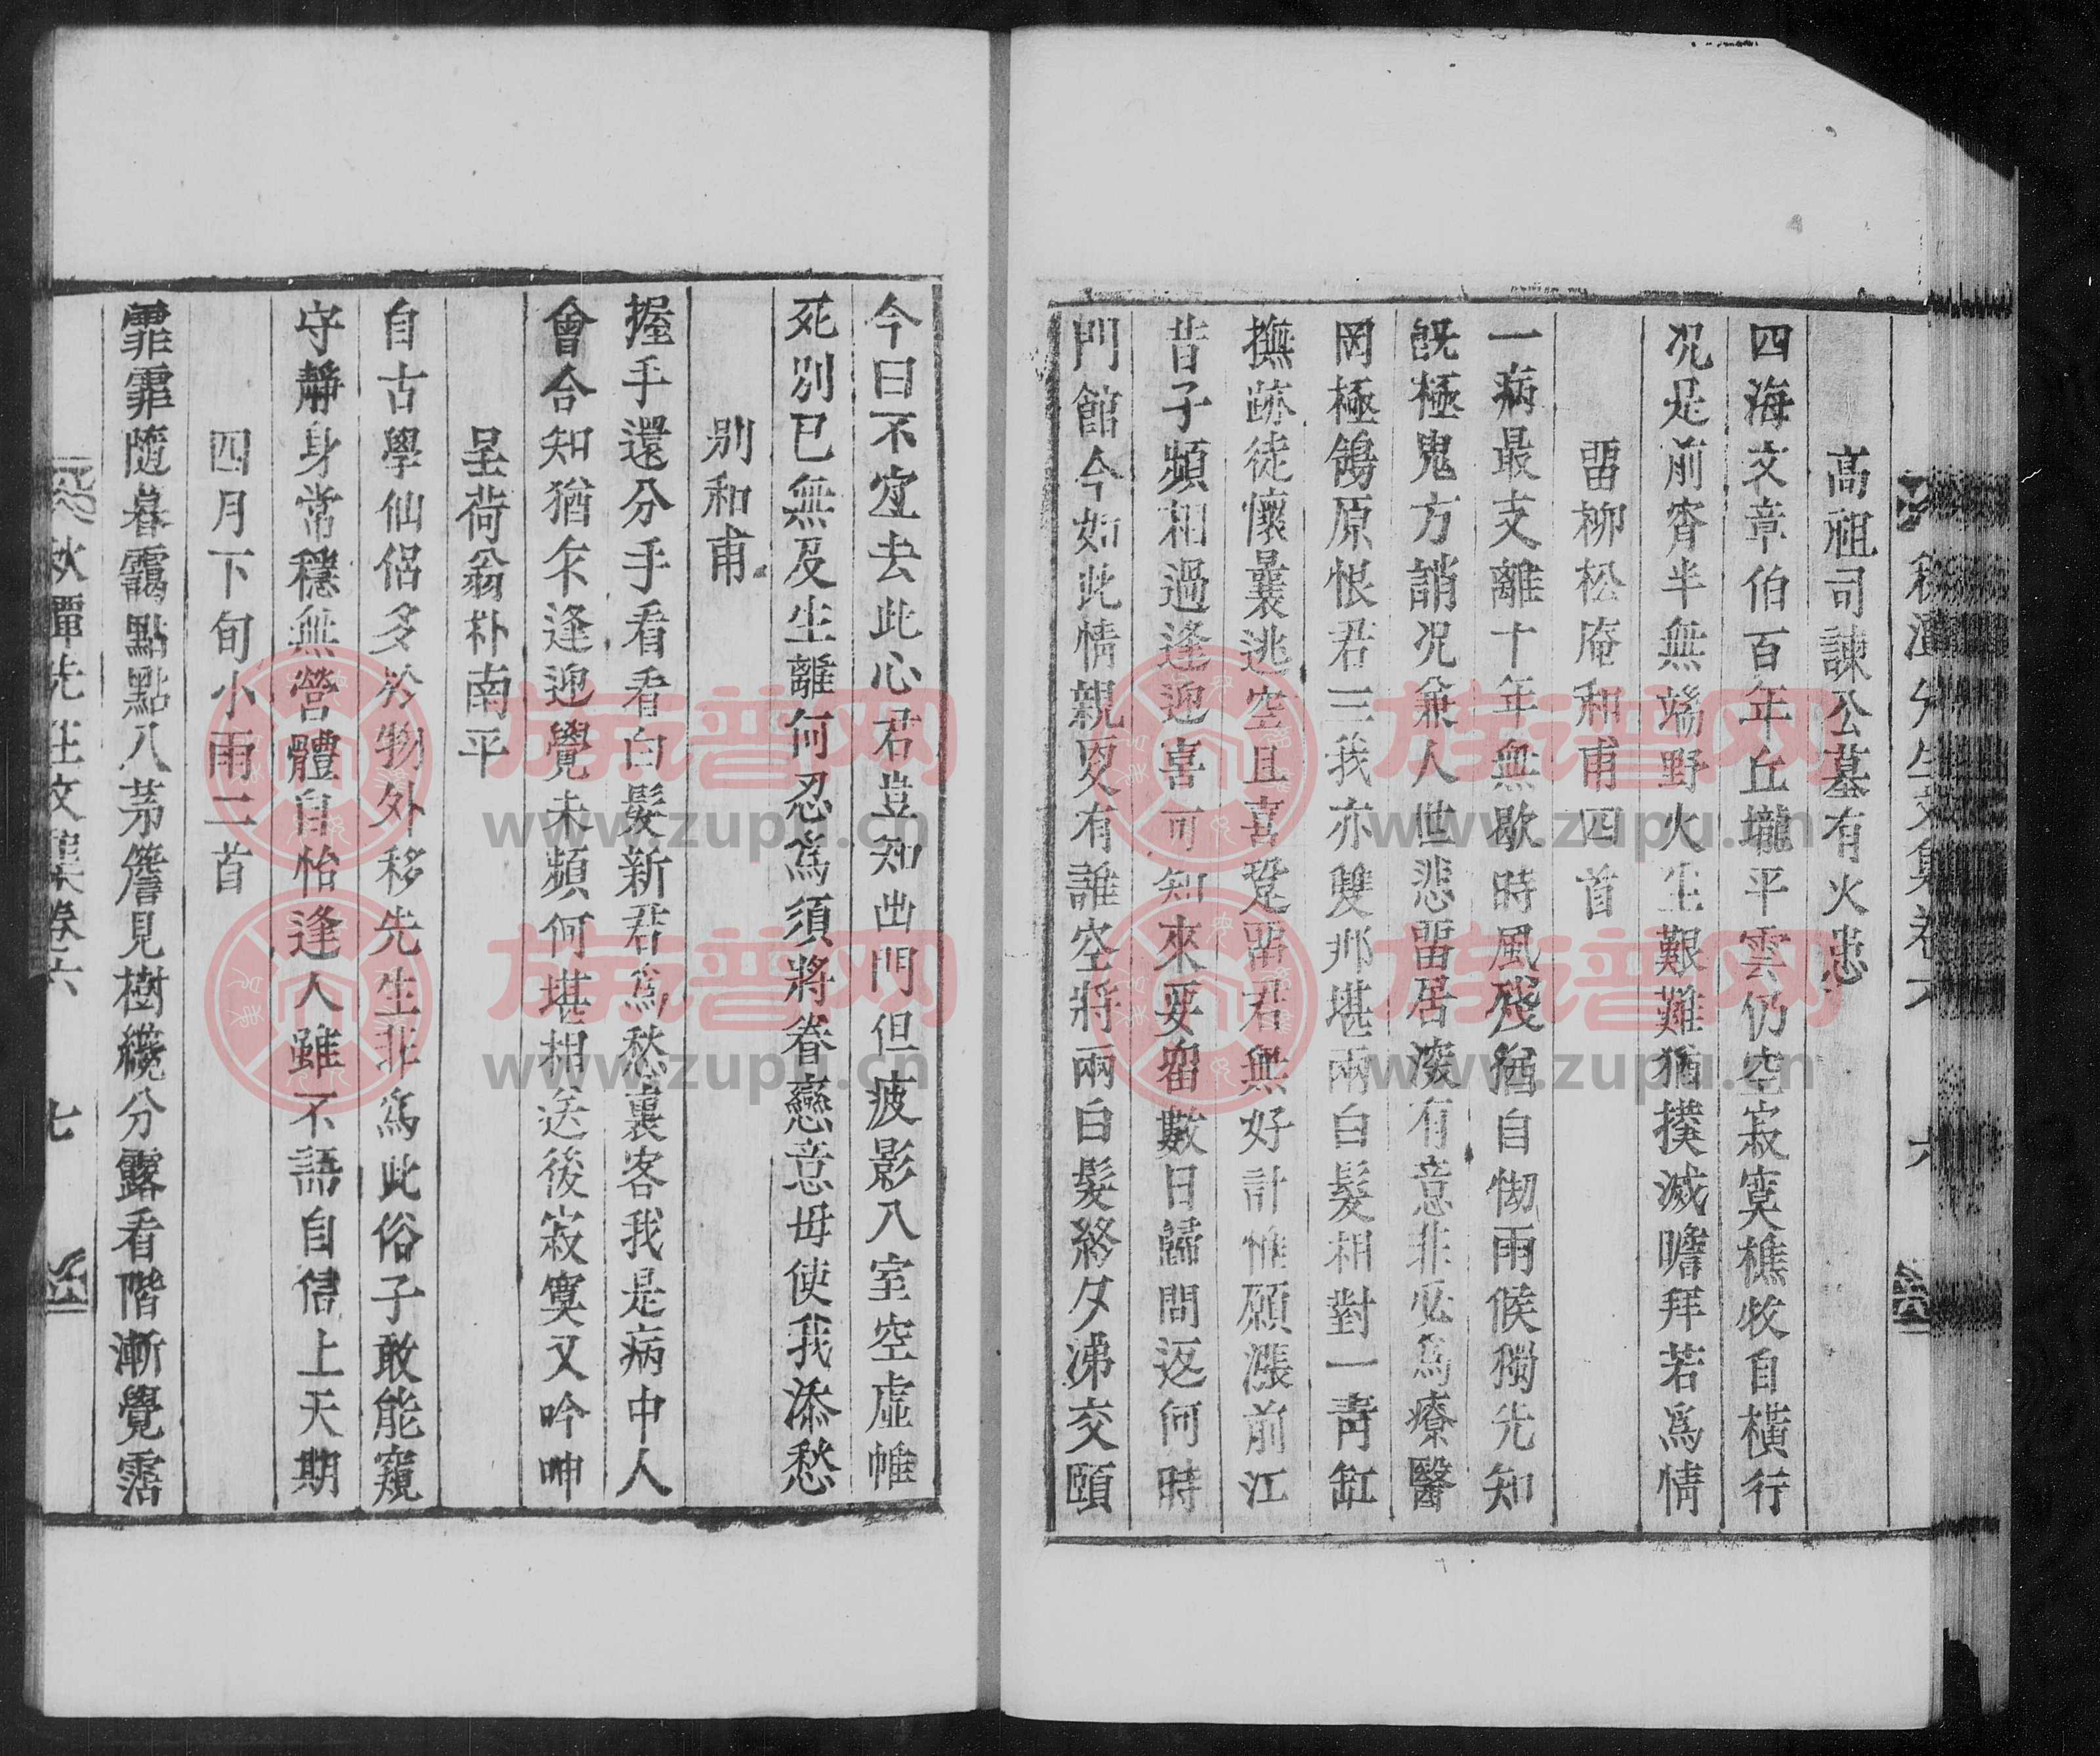 秋潭先生文集卷六　六
高祖司諫公墓有火患
四海文章伯百年丘壠平雲仍空寂寞樵牧自橫行
况是前宵半無端野火生艱難猶撲滅瞻拜若爲情
畱柳松庵和甫四首
一病最支離十年無歇時風殘猶自㤼雨候獨先知
旣極鬼方誚况兼人世悲畱居深有意非必爲療醫
罔極鴒原恨君三我亦雙那堪兩白髮相對一靑缸
撫跡徒懷曩逃空且喜跫畱君無好計惟願漲前江
昔子頻相過逢迎喜可知來要畱數日歸問返何時
門館今如此情親更有誰空將兩白髮終夕涕交頤
今日不宜去此心君豈知出門但疲影入室空虛帷
死別已無及生離何忍爲須將眷戀意毋使我添愁
别和甫
握手還分手看看白髮新君爲愁裏客我是病中人
會合知猶乍逢迎覺未頻何堪相送後寂寞又吟呻
呈荷翁朴南平
自古學仙侶多於物外移先生非爲此俗子敢能窺
守靜身常穩無營體自怡逢人雖不語自信上天期
四月下旬小雨二首
霏霏隨暮靄點點入茅簷見樹纔分露看階漸覺霑
秋潭先生文集卷六　七
族谱网
www.zupu.cn
族谱网
www.zupu.cn
族谱网
www.zupu.cn
族谱网
www.zupu.cn